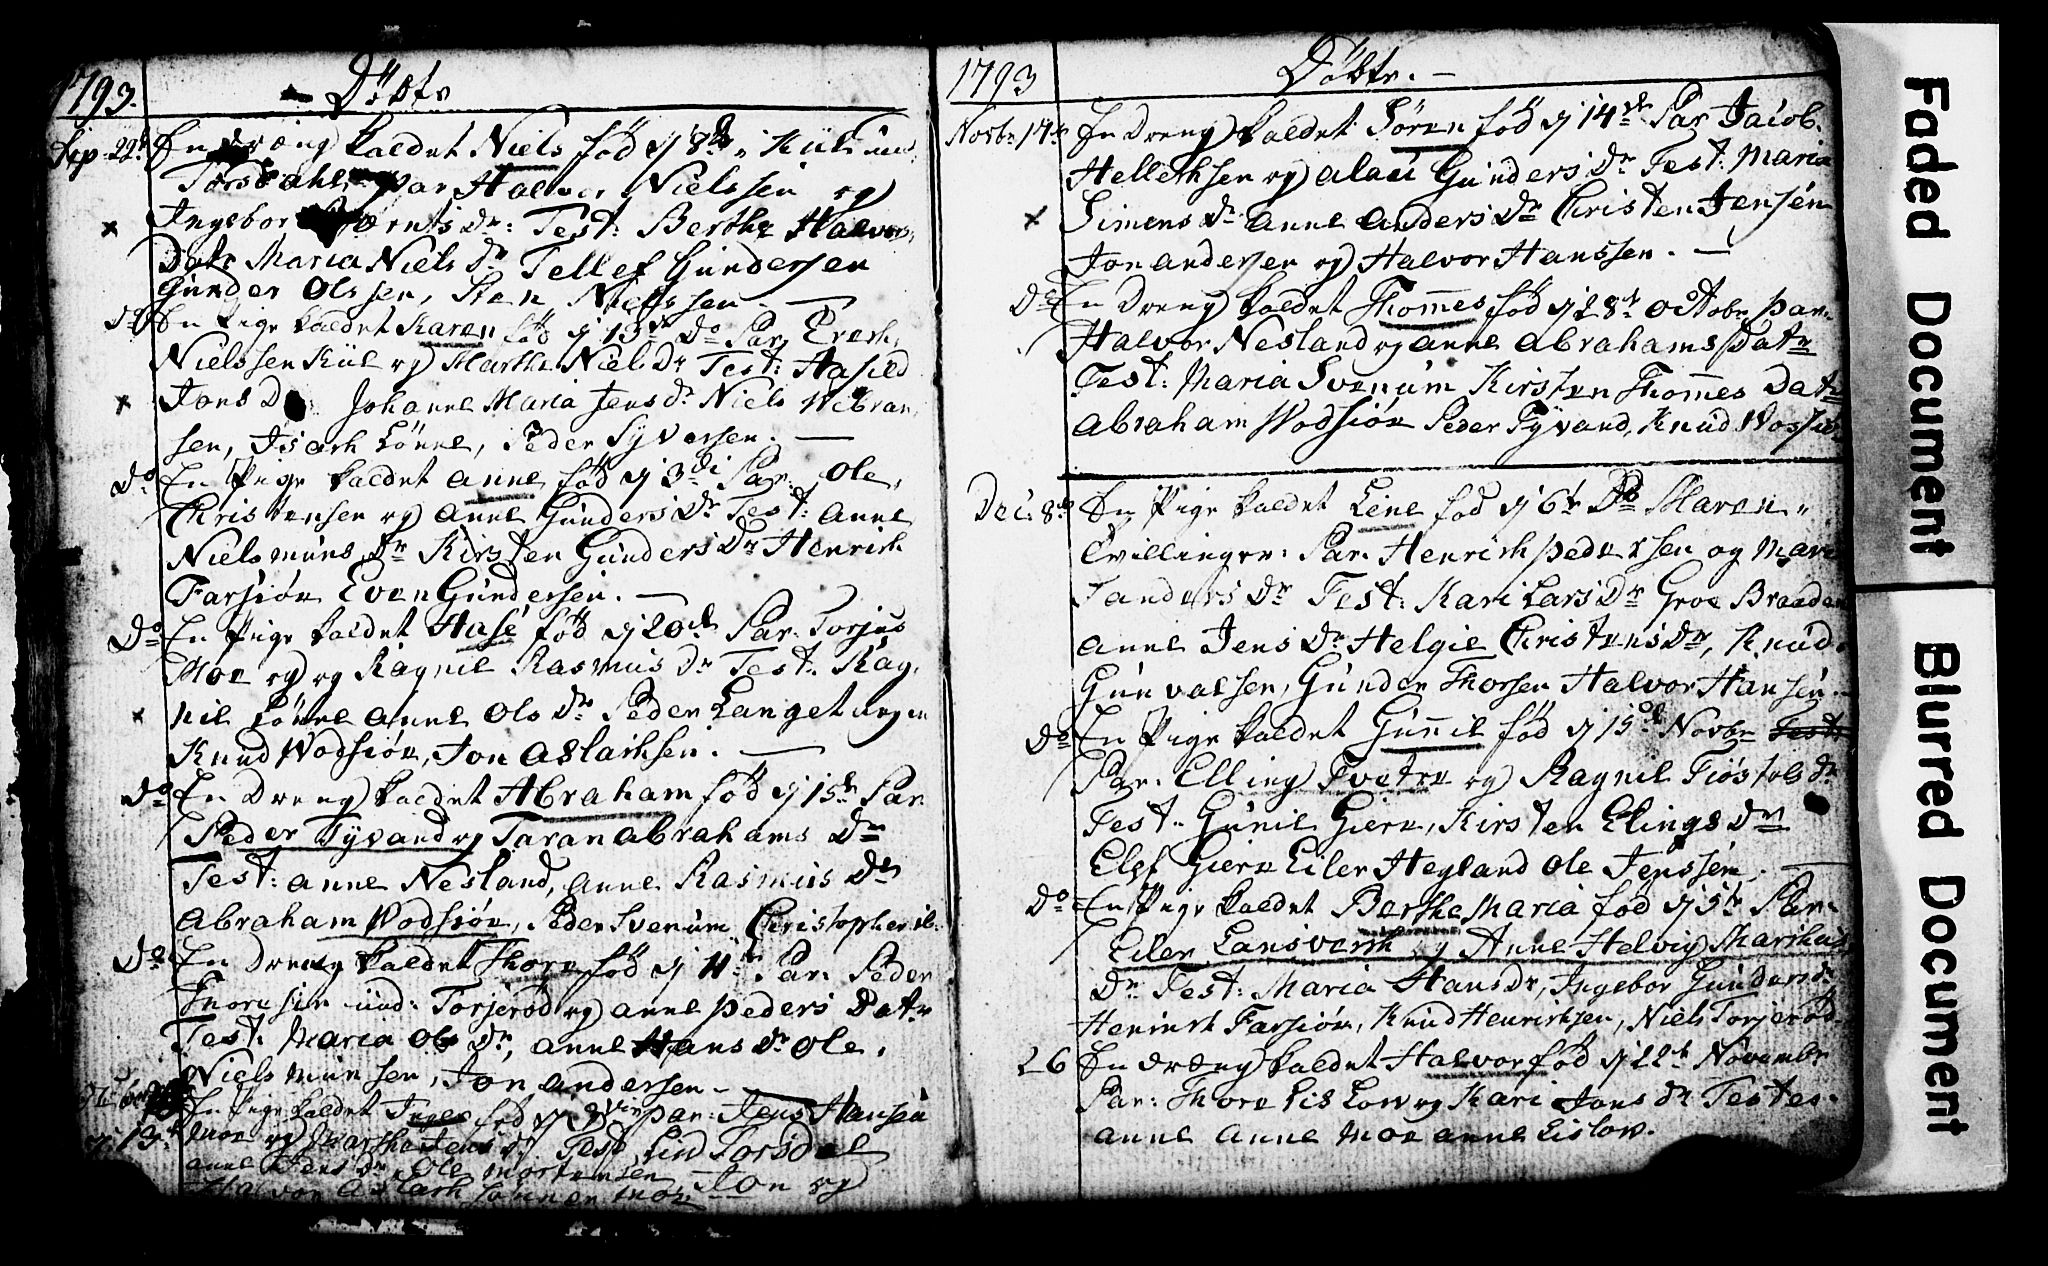 1793.
Döbte
Sep. 22de En dræng kaldet Niels fød d 8de i Kiil und
Torsdahl par Halvor Nielssen og
Ingebor Berents Dr: Test: Berthe Halvors
Datr Maria Niels Dr Tellef Gundersen
Gunder Olssen, Sten Nielssen —
Do En Pige kaldet Karen fød d 13de Do Par Erech
Nielssen Kiil og Marthe Niels Dr Test: Hasild
Jons Dr Johanne Maria Jens Dr Niels Webran
sen, Isach Lönne, Peder Syversen. —
Do En Pige kaldet Anne fød d 3di Par: Ole
Christensen og Anne Gunders Dr Test: Anne
Nielsmuns Dr Kirsten Gunders Dr Henrich
Farsiön Even Gundersen. —
Do En Pige kaldet Hase fød d 20de Par: Torjus
Moe og og Ragnil Rasmus Dr Test: Rag
nil Lönne Anne Ols Dr Peder Langetangen
Knud Vodsiön, Jon Aslachsen. —
Do En Dreng kaldet Abraham fød d 15de Par
Peder Tyvand og Taran Abrahams Dr
Test: Anne Nesland, Anne Rasmus Dr
Abraham Vodsiön, Peder Svenum Christopher
Do En Dreng kaldet Thore fød d 11te Par: Peder
Thoresen und: Torjerød og Anne Peders Datr
Test: Maria Ols Dr, Anne Hans Dr Ole
Nielsmunsen, Jon Andersen —
d 13de En Pige kaldet Inger fød d Par: Jens Hansen
Moe og Marthe Jens Dr Test: Lind Torsdal
Anne Jens Dr Ole Mortensen Jon og
Halvor Aslach Sönner Moe
1793
Döbte. —
Novbr 17de En Dreng kaldet Sören fød d 14de Par Jacob
Hellechsen og Alau Gunders Dr Test: Maria
Simens Dr Anne Anders Dr Christen Jensen
Jon Andersen og Halvor Hanssen. —
Do En Dreng kaldet Thomes fød d 28de Octobr Par:
Halvor Nesland og Anne Abrahams Datr
Test: Maria Svenum Kirsten Thomes Datr
Abraham Vodsiön Peder Tyvand, Knud Vossiön
Dec: 8de En Pige kaldet Line fød d 6te Do Maren
Tvillinger: Par: Henrich Pedersen og Mari
Tanders Dr Test: Kari Lars Dr Groe Braaden
Anne Jens Dr Helgie Christens Dr, Knud
Gunvalsen, Gunder Thorsen Halvor Hansen. —
Do En Pige kaldet Gunnil fød d 15de Novbr Test:
Par: Elling Tvetre og Ragnil Tiöstols Dr
Test: Gunil Giere, Kirsten Elings Dr
Elef Giere Eiler Hegland Ole Jenssen. —
Do En Pige kaldet Berthe Maria fød d 5te Par:
Eiler Lansverk og Anne Helvig Marthus
Dr Test: Maria Hans Dr, Ingebor Gunders Dr
Henirch Farsiön, Knud Henrichsen, Niels Torjerød.
26 En dræng kaldet Halvor fød d 22de Novembr
Par: Thore Lislow og Kari Jons Dr Testes
Anne Anne Moe Anne Lislow.
Faded Document
Blurred Document